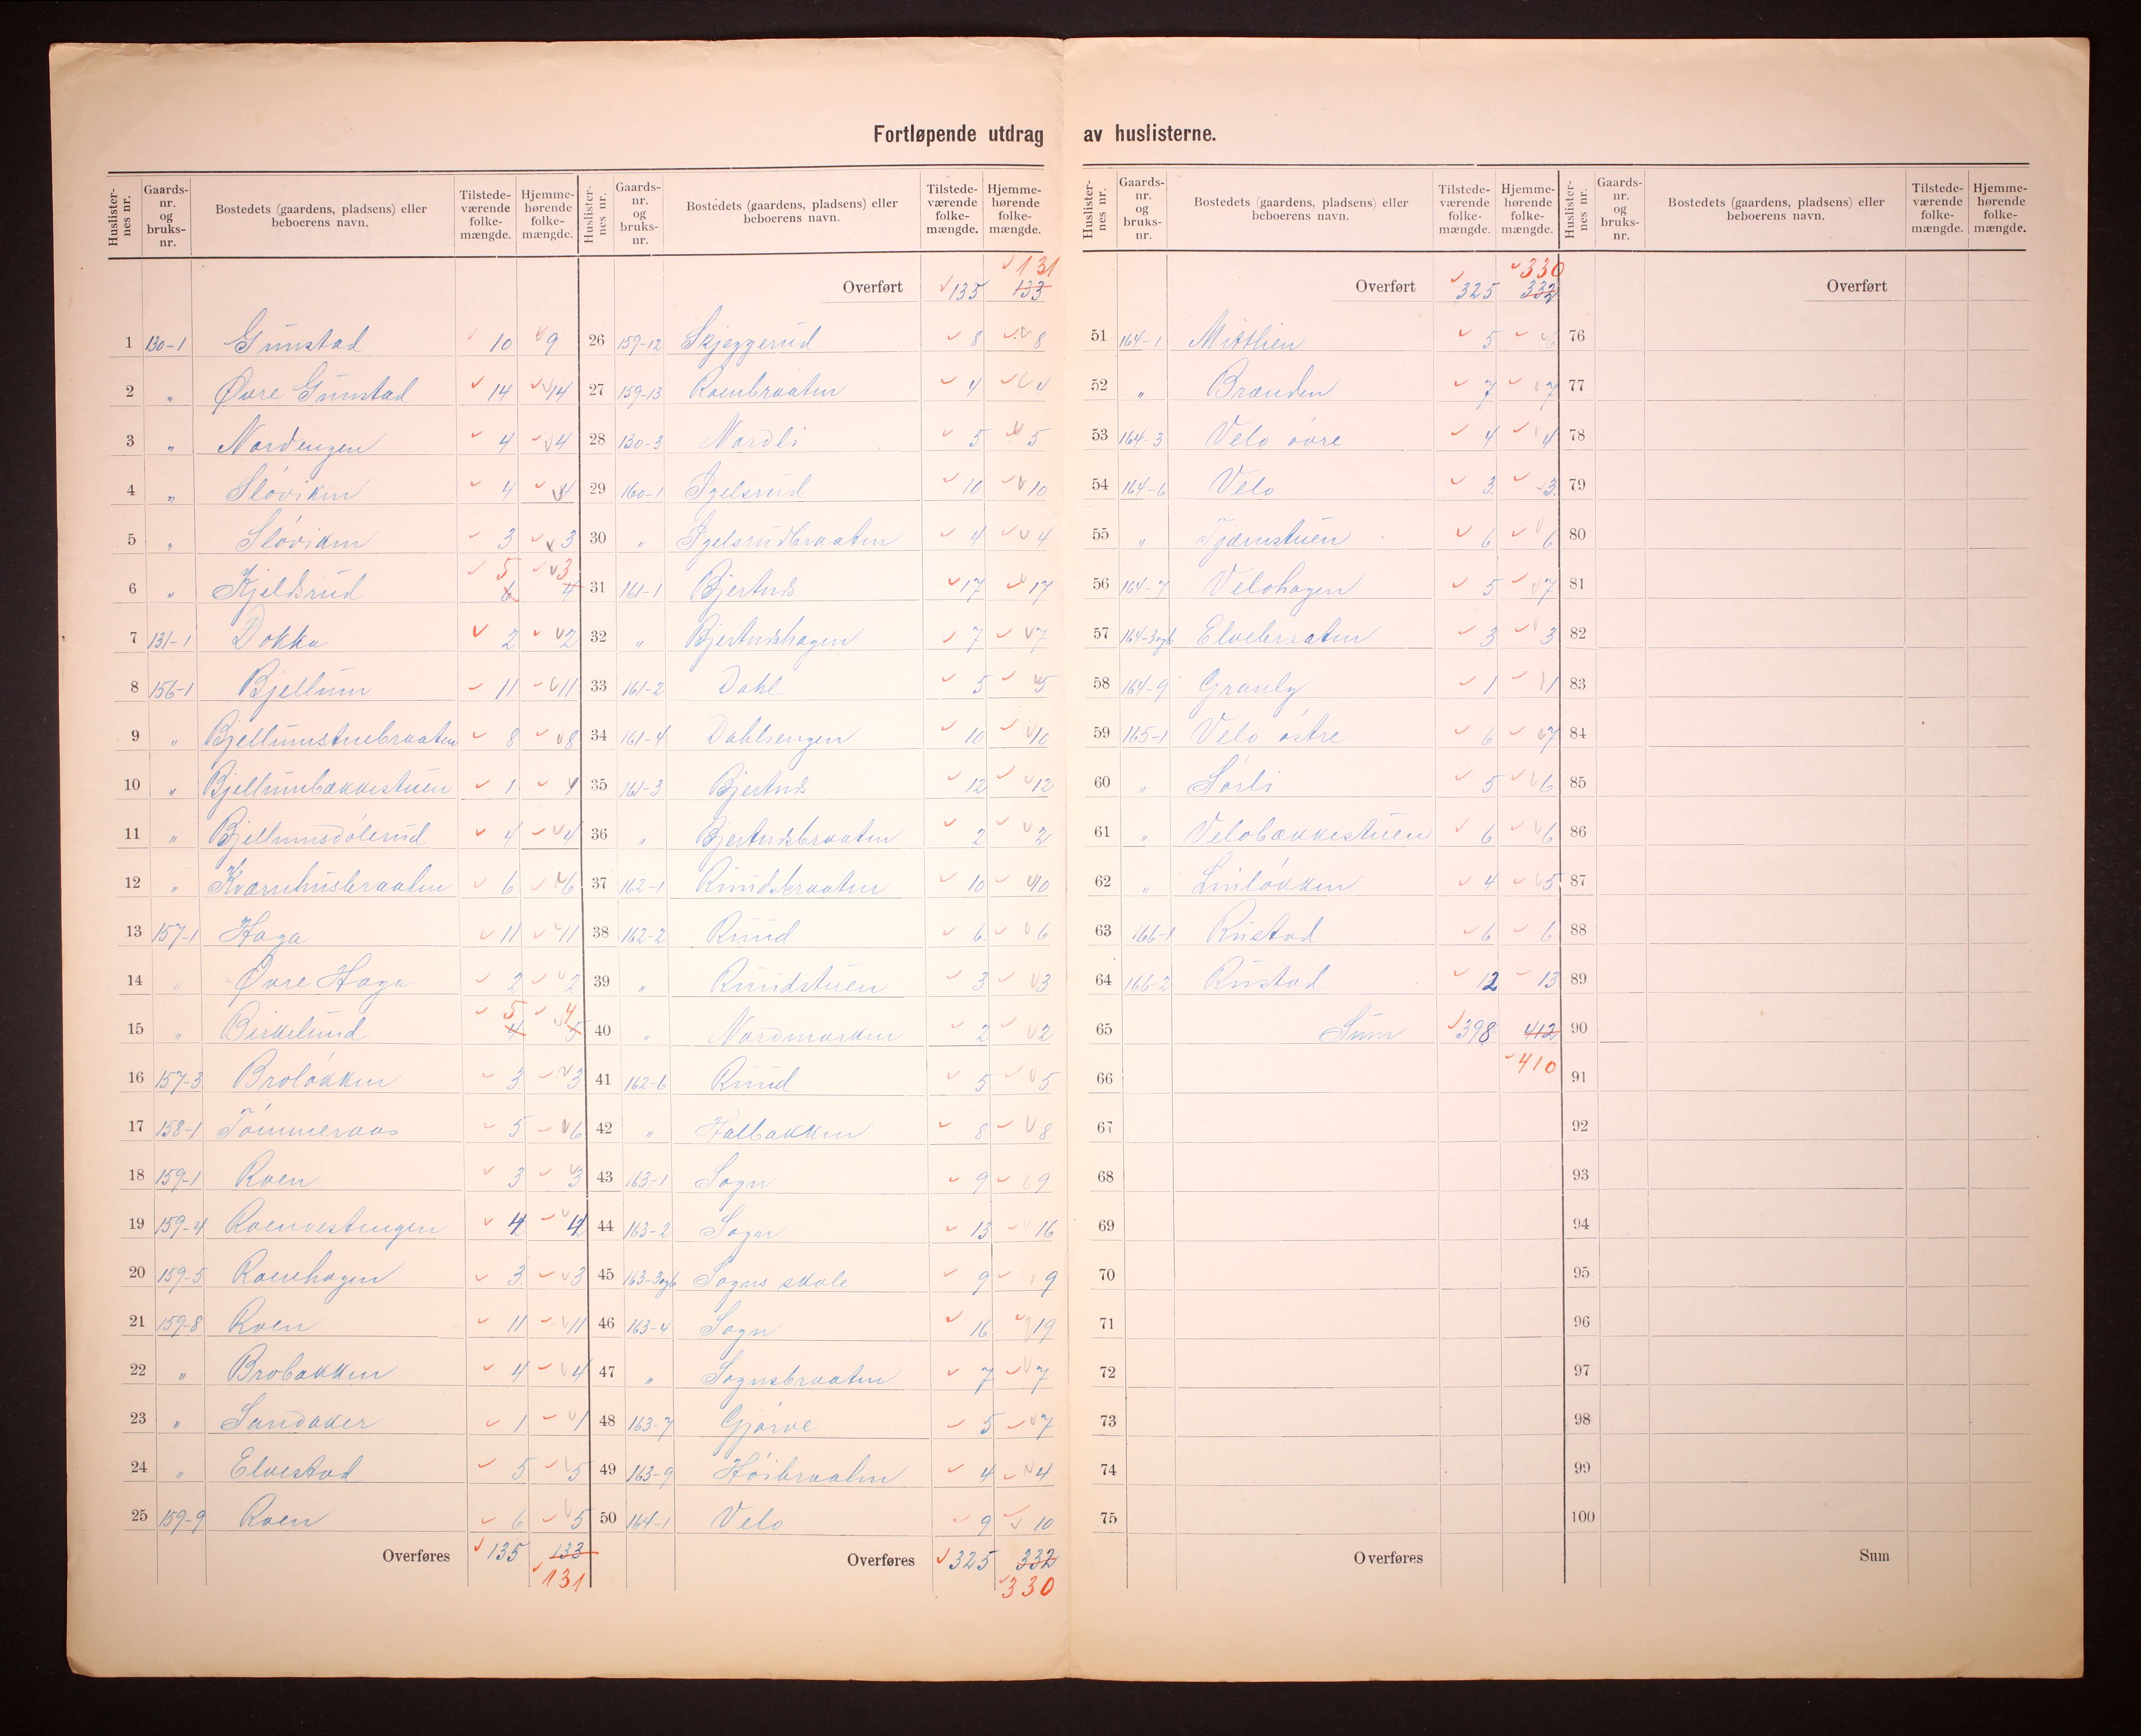 Fortløpende utdrag av huslisterne.
Huslister-nes nr. Gaards-nr. og bruks-nr. Bostedets (gaardens, pladsens) eller beboerens navn. Tilstede-værende folke-mængde. Hjemme-hørende folke-mængde.
1 130-1 Gunstad 10 9
2 " Øvre Gunstad 14 14
3 " Nordengen 4 4
4 " Sløviken 4 4
5 " Sløviken 3 3
6 " Kjeldsrud 6 5 4 3
7 131-1 Dokka 2 2
8 156-1 Bjellum 11 11
9 " Bjellumstuebraaten 8 8
10 " Bjellumbækkestuen 1 1
11 " Bjellumsdølerud 4 4
12 " Kværnhusbraaten 6 6
13 157-1 Haga 11 11
14 " Øvre Haga 2 2
15 " Birkelund 4 5 5 4
16 157-3 Broløkken 3 3
17 158-1 Tømmeraas 5 6
18 159-1 Roen 3 3
19 159-4 Roenvestengen 4 4
20 159-5 Roenhagen 3 3
21 159-8 Roen 11 11
22 " Brobakken 4 4
23 " Sandaker 1 1
24 " Elvestad 5 5
25 159-9 Roen 6 5
Overføres 135 133
131
Huslister-nes nr. Gaards-nr. og bruks-nr. Bostedets (gaardens, pladsens) eller beboerens navn. Tilstede-værende folke-mængde. Hjemme-hørende folke-mængde.
131
Overført 135 133
26 159-12 Skjeggerud 8 8
27 159-13 Roenbraaten 4 4
28 130-3 Nordli 5 5
29 160-1 Igelsrud 10 10
30 " Igelsrudbraaten 4 4
31 161-1 Bjertnes 17 17
32 " Bjertneshagen 7 7
33 161-2 Dahl 5 5
34 161-4 Dahlsengen 10 10
35 161-3 Bjertnes 12 12
36 " Bjertnesbraaten 2 2
37 162-1 Rundsbraaten 10 10
38 162-2 Rund 6 6
39 " Rundstuen 3 3
40 " Nordmarken 2 2
41 162-6 Rund 5 5
42 " Halbakken 8 8
43 163-1 Sogn 9 9
44 163-2 Sogn 13 16
45 163-3og6 Sogns skole 9 9
46 163-4 Sogn 16 19
47 " Sognsbraaten 7 7
48 163-7 Gjørve 5 7
49 163-9 Høibraaten 4 4
50 164-1 Velo 9 10
Overføres 325 332
330
Huslister-nes nr. Gaards-nr. og bruks-nr. Bostedets (gaardens, pladsens) eller beboerens navn. Tilstede-værende folke-mængde. Hjemme-hørende folke-mængde.
330
Overført 325 332
51 164-1 Midtlien 5 6
52 " Brænden 7 7
53 164-3 Velo øvre 4 4
54 164-6 Velo 3 3
55 " Tjærnstuen 6 6
56 164-7 Velohagen 5 7
57 164-3og6 Elvebraaten 3 3
58 164-9 Granly 1 1
59 165-1 Velo østre 6 7
60 " Sørli 5 6
61 " Velobækkestuen 6 6
62 " Linløkken 4 5
63 166-1 Rustad 6 6
64 166-2 Rustad 12 13
65 Sum 398 412
66 410
67
68
69
70
71
72
73
74
75
Overføres
Huslister-nes nr. Gaards-nr. og bruks-nr. Bostedets (gaardens, pladsens) eller beboerens navn. Tilstede-værende folke-mængde. Hjemme-hørende folke-mængde.
Overført
76
77
78
79
80
81
82
83
84
85
86
87
88
89
90
91
92
93
94
95
96
97
98
99
100
Sum